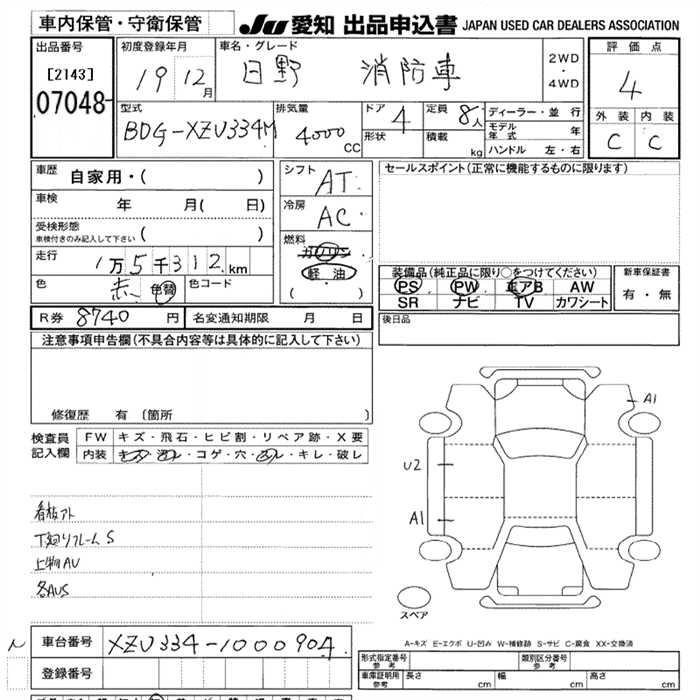 車内保管・守衛保管
JU 愛知 出品申込書 JAPAN USED CAR DEALERS ASSOCIATION
出品番号
[2143]
07048
初度登録年月
19 12月
車名・グレード
日野 消防車
2WD
・
4WD
評価点
4
外装 内装
C C
型式
BDG-XZU334M
排気量
4000
CC
ドア 4
形状
定員 8人
積載
kg
ディーラー・並行
モデル年式 年
ハンドル 左・右
車歴
自家用・( )
車検 年 月( 日)
受検形態
車検付きのみ記入して下さい ( )
走行 1万5千312km
色 赤 色替 色コード
シフト
AT
冷房
AC
燃料
ガソリン
軽油
( )
セールスポイント(正常に機能するものに限ります)
装備品(純正品に限り○をつけてください)
PS PW エアB AW
SR ナビ TV カワシート
新車保証書
有・無
R券 8740 円 名変通知期限 月 日
後日品
注意事項申告欄(不具合内容等は具体的に記入して下さい)
修復歴 有〔箇所 〕
検査員記入欄
FW キズ・飛石・ヒビ割・リペア跡・X要
内装 キズ・汚レ・コゲ・穴・スレ・キレ・破レ
看板アト
下廻りフレームS
上物AU
各AUS
A1
U2
A1
スペア
A-キズ E-エクボ U-凹み W-補修跡 S-サビ C-腐食 XX-交換済
車台番号 XZU334-1000904
登録番号
形式指定番号
参考
類別区分番号
参考
車庫証明用
参考
長さ cm 幅 cm 高さ cm